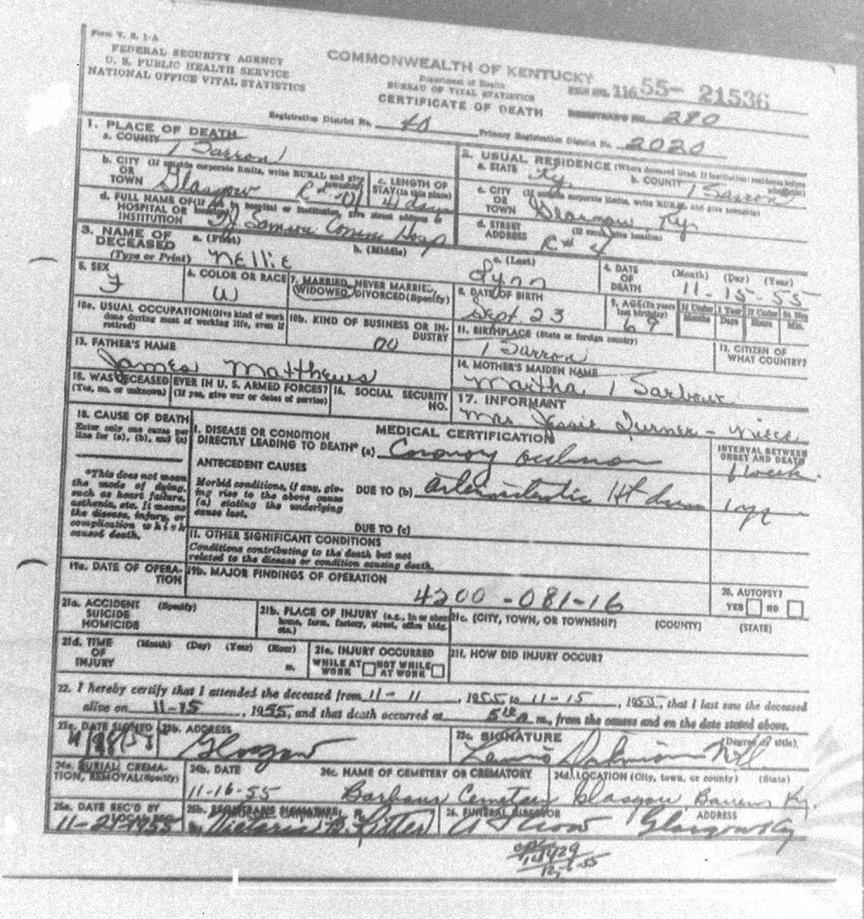 Form V. S. 1-A
FEDERAL SECURITY AGENCY
U. S. PUBLIC HEALTH SERVICE
NATIONAL OFFICE VITAL STATISTICS
COMMONWEALTH OF KENTUCKY
Department of Health
BUREAU OF VITAL STATISTICS
CERTIFICATE OF DEATH
116 55- 21536
REGISTRAR'S NO. 290
Registration District No. 40 Primary Registration District No. 2020
1. PLACE OF DEATH
a. COUNTY Barron
b. CITY (If outside corporate limits, write RURAL and give township)
OR
TOWN Glasgow
c. LENGTH OF STAY (in this place) 4 days
d. FULL NAME OF (If not in hospital or institution, give street address
HOSPITAL OR
INSTITUTION TJ Samson Comm Hosp
2. USUAL RESIDENCE (Where deceased lived. If institution: residence before
a. STATE Ky. b. COUNTY Barron
c. CITY (If outside corporate limits, write RURAL and give township)
OR
TOWN Glasgow Ky.
d. STREET ADDRESS R # 4
3. NAME OF DECEASED (Type or Print)
a. (First) Nellie
b. (Middle)
c. (Last) Lynn
4. DATE OF DEATH (Month) (Day) (Year) 11-15-55
5. SEX F
6. COLOR OR RACE W
7. MARRIED, NEVER MARRIED, WIDOWED, DIVORCED (Specify)
8. DATE OF BIRTH Sept 23
9. AGE (In years last birthday) 69
If Under 1 Year Months Days
If Under 24 Hrs. Hours Min.
10a. USUAL OCCUPATION (Give kind of work done during most of working life, even if retired)
10b. KIND OF BUSINESS OR INDUSTRY 00
11. BIRTHPLACE (State or foreign country) Barron
12. CITIZEN OF WHAT COUNTRY?
13. FATHER'S NAME James Matthews
14. MOTHER'S MAIDEN NAME Martha Barbour
15. WAS DECEASED EVER IN U. S. ARMED FORCES?
(Yes, no, or unknown) (If yes, give war or dates of service)
16. SOCIAL SECURITY NO.
17. INFORMANT Mrs Jessie Turner - Niece
18. CAUSE OF DEATH
Enter only one cause per line for (a), (b), and (c)
*This does not mean the mode of dying, such as heart failure, asthenia, etc. It means the disease, injury, or complication which caused death.
MEDICAL CERTIFICATION
I. DISEASE OR CONDITION
DIRECTLY LEADING TO DEATH* (a) Coronory occlusion
INTERVAL BETWEEN ONSET AND DEATH 1 week.
ANTECEDENT CAUSES
Morbid conditions, if any, giving rise to the above cause (a) stating the underlying cause last.
DUE TO (b) Ht 1 yr
DUE TO (c)
II. OTHER SIGNIFICANT CONDITIONS
Conditions contributing to the death but not related to the disease or condition causing death.
19a. DATE OF OPERATION
19b. MAJOR FINDINGS OF OPERATION
4200-081-16
20. AUTOPSY?
YES NO
21a. ACCIDENT (Specify)
SUICIDE
HOMICIDE
21b. PLACE OF INJURY (e.g., in or about home, farm, factory, street, office bldg. etc.)
21c. (CITY, TOWN, OR TOWNSHIP) (COUNTY) (STATE)
21d. TIME OF INJURY (Month) (Day) (Year) (Hour) m.
21e. INJURY OCCURRED
WHILE AT WORK NOT WHILE AT WORK
21f. HOW DID INJURY OCCUR?
22. I hereby certify that I attended the deceased from 11-11, 1955 to 11-15, 1955, that I last saw the deceased
alive on 11-15, 1955, and that death occurred at m., from the causes and on the date stated above.
23a. DATE SIGNED
23b. ADDRESS Glasgow
23c. SIGNATURE (Degree or title)
24a. BURIAL, CREMATION, REMOVAL (Specify)
24b. DATE 11-16-55
24c. NAME OF CEMETERY OR CREMATORY Barbour Cemetery
24d. LOCATION (City, town, or county) (State) Glasgow Barren Ky.
25a. DATE REC'D BY LOCAL REG. 11-21-1955
25b. REGISTRAR'S SIGNATURE
26. FUNERAL DIRECTOR A F Crow
ADDRESS Glasgow Ky